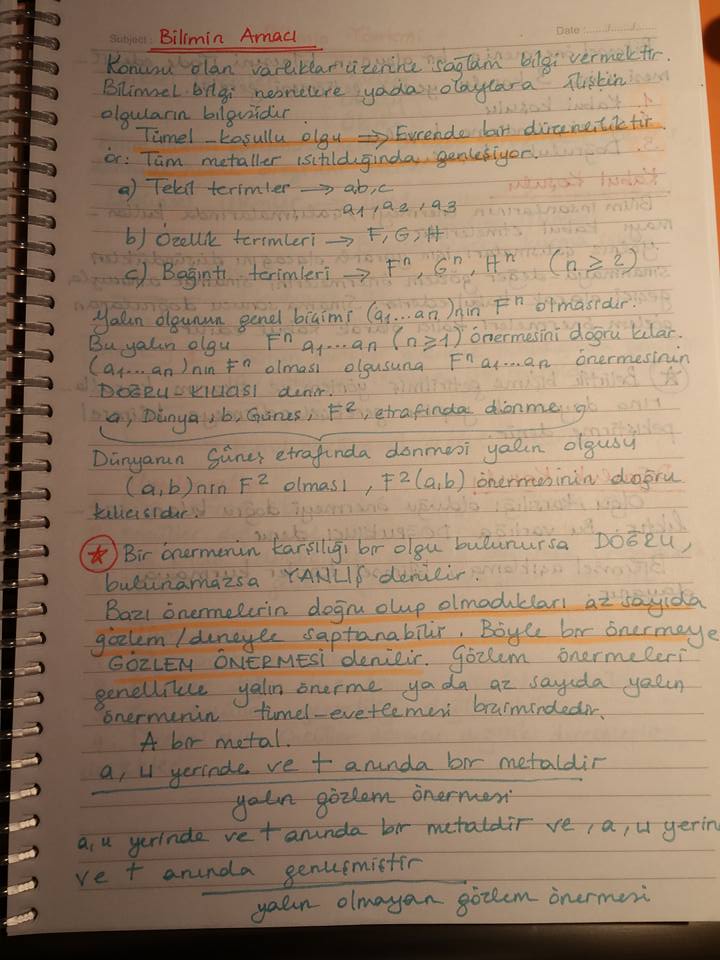 Subject : Bilimin Amacı
Date :....../....../......
Konusu olan varlıklar üzerine sağlam bilgi vermektir.
Bilimsel bilgi nesnelere yada olaylara ilişkin
olguların bilgisidir.
Tümel-koşullu olgu → Evrende bir düzenliliktir.
ör: Tüm metaller ısıtıldığında genleşiyor.
a) Tekil terimler → a,b,c
a1, a2, a3
b) Özellik terimleri → F, G, H
c) Bağıntı terimleri → Fⁿ, Gⁿ, Hⁿ (n ≥ 2)
Yalın olgunun genel biçimi (a1...an)'nin Fⁿ olmasıdır.
Bu yalın olgu Fⁿ a1...an (n≥1) önermesini doğru kılar.
(a1...an)'nın Fⁿ olması olgusuna Fⁿ a1...an önermesinin
DOĞRU-KILICISI denir.
a, Dünya, b, Güneş, F², etrafında dönme
Dünyanın Güneş etrafında dönmesi yalın olgusu
(a,b)'nın F² olması, F²(a,b) önermesinin doğru
kılıcısıdır.
Bir önermenin karşılığı bir olgu bulunursa DOĞRU,
bulunamazsa YANLIŞ denilir.
Bazı önermelerin doğru olup olmadıkları az sayıda
gözlem/deneyle saptanabilir. Böyle bir önermeye
GÖZLEM ÖNERMESİ denilir. Gözlem önermeleri
genellikle yalın önerme ya da az sayıda yalın
önermenin tümel-evetlemesi biçimindedir.
A bir metal.
a, u yerinde ve t anında bir metaldir
yalın gözlem önermesi
a, u yerinde ve t anında bir metaldir ve, a, u yerin
ve t anında genleşmiştir
yalın olmayan gözlem önermesi